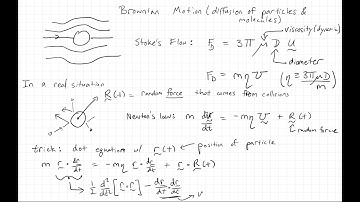 Brownian Motion (diffusion of particles & molecules)
viscosity (dynamic)
Stoke's Flow: F_D = 3π μ D U
diameter
F_D = m η U (η ≡ 3πμD / m)
In a real situation
R(t) = random force that comes from collisions
Newton's laws m dv/dt = -m η v + R(t)
random force
trick: dot equation w/ r(t) ← position of particle
m r · dv/dt = -m η r · dr/dt + r · R(t)
1/2 d²/dt² [r · r] - dr/dt · dr/dt
v²